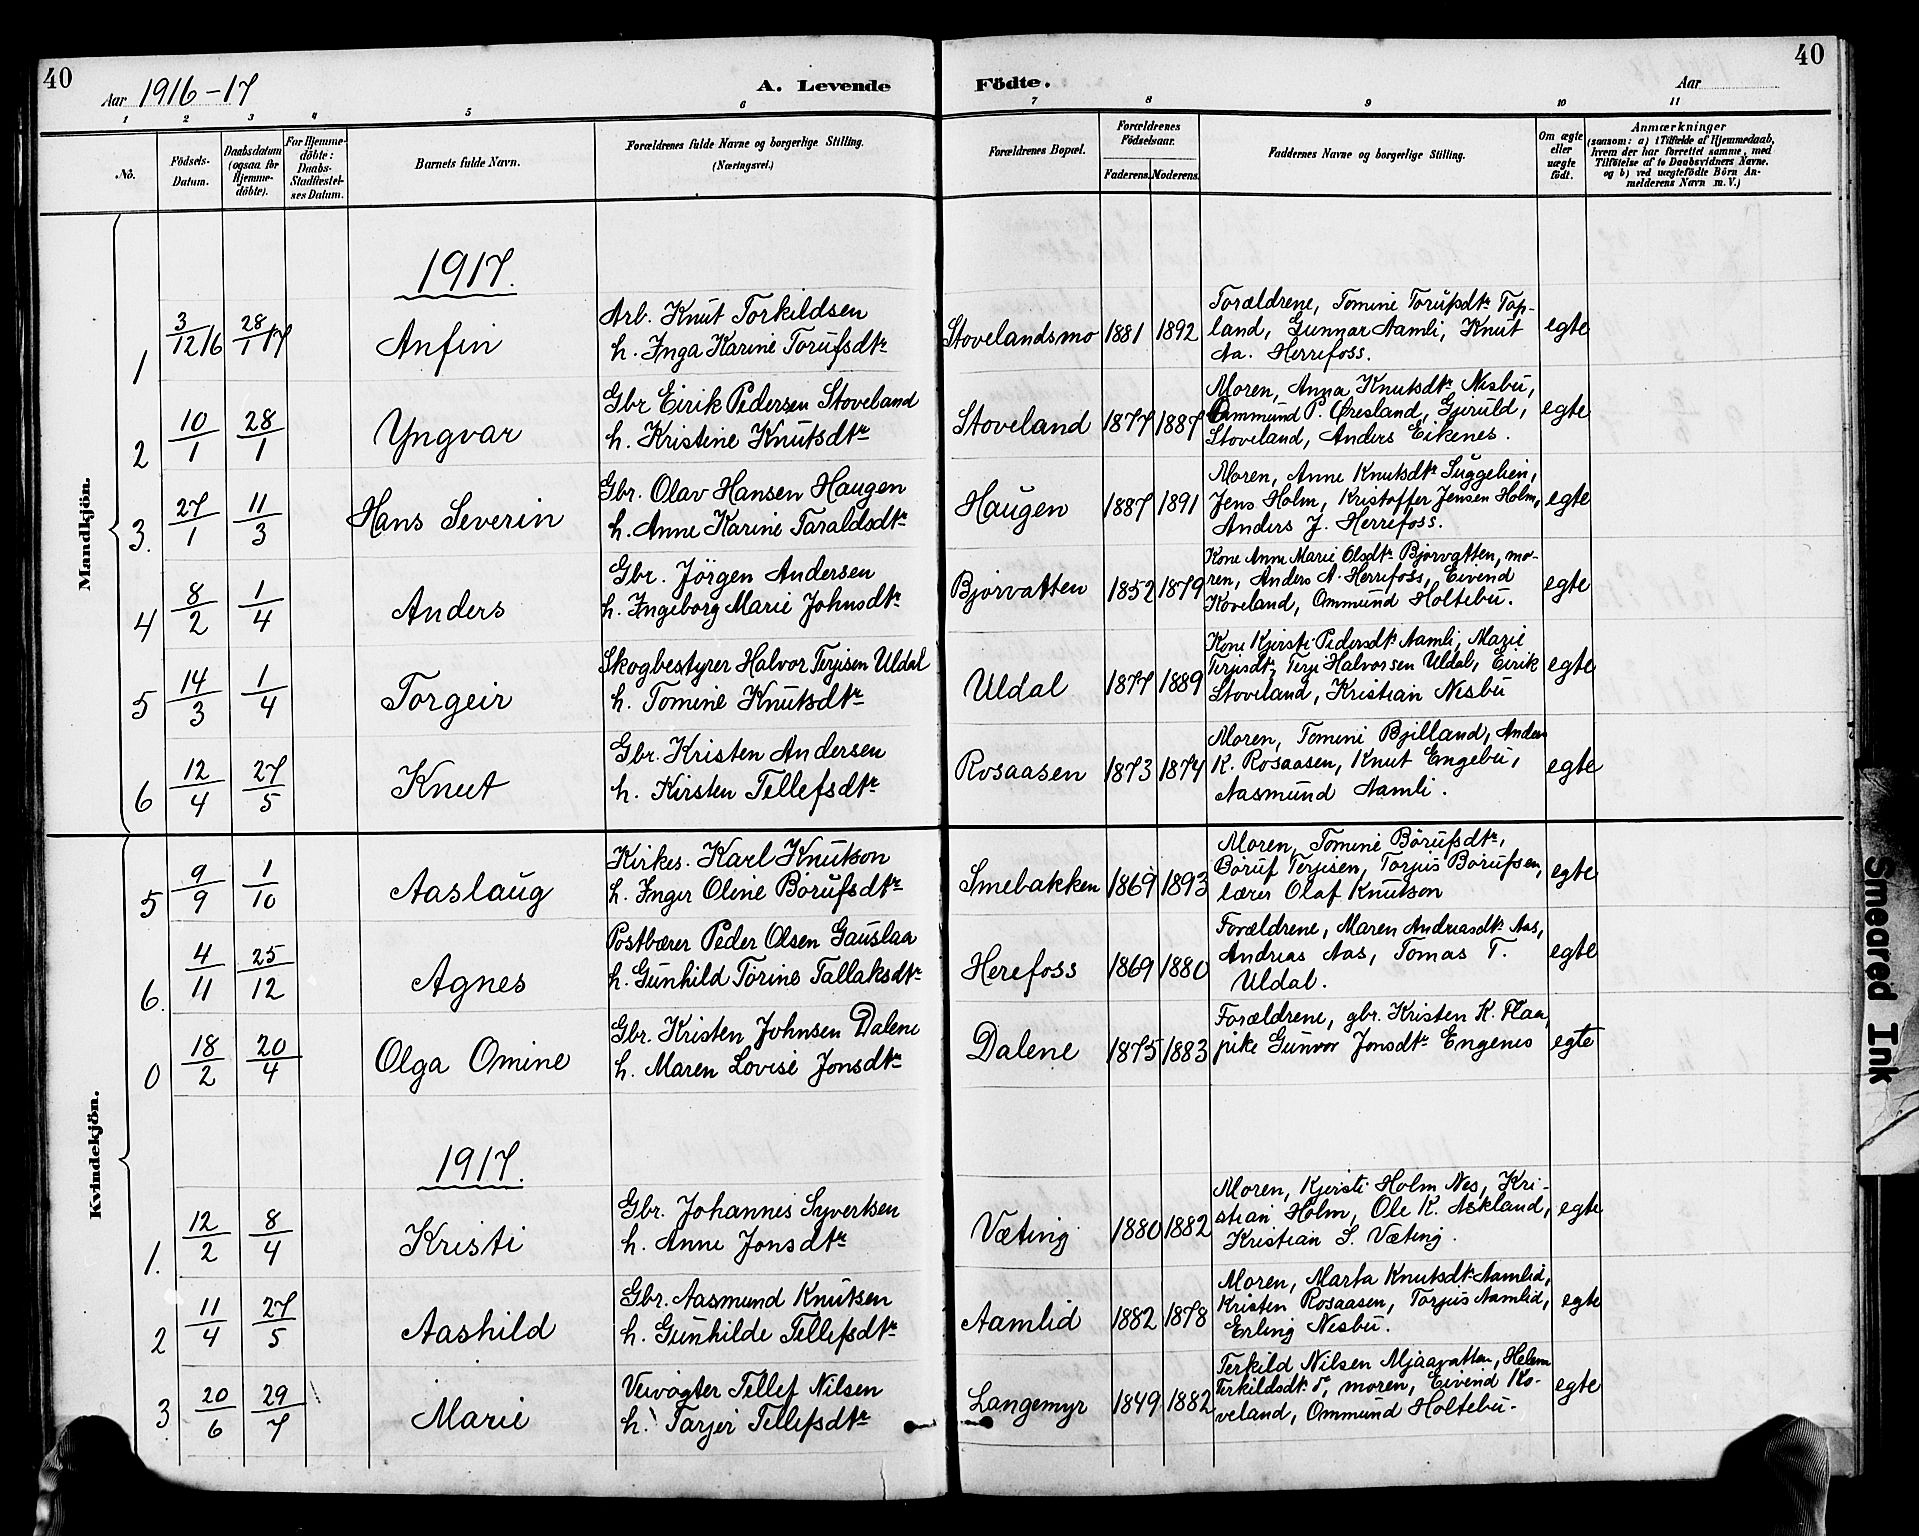 40
Aar 1916-17
A. Levende Födte.
Aar
40
1 2 3 4 5 6 7 8 9 10 11
No.
Födsels-
Datum.
Daabsdatum
(ogsaa for
Hjemme-
döbte).
For Hjemme-
döbte:
Daabs-
Stadfæstel-
ses Datum.
Barnets fulde Navn.
Forældrenes fulde Navne og borgerlige Stilling.
(Næringsvei.)
Forældrenes Bopæl.
Forældrenes
Födselsaar.
Faderens. Moderens.
Faddernes Navne og borgerlige Stilling.
Om ægte
eller
uægte
födt.
Anmærkninger
(saasom: a) i Tilfælde af Hjemmedaab,
hvem der har forrettet samme, med
Tilföielse af to Daabsvidners Navne.
og b) ved uægtefödte Börn An-
melderens Navn m. V.)
Mandkjön.
1917.
1 3/12 16 28/1 17 Anfin
Arb. Knut Torkildsen
h. Inga Karine Torufsdtr
Stovelandsmo 1881 1892
Forældrene, Tomine Torufsdtr Top-
land, Gunnar Aamli, Knut
Aa. Herrefoss.
egte
2 10/1 28/1 Yngvar
Gbr Eirik Pedersen Stoveland
h. Kristine Knutsdtr
Stoveland 1877 1887
Moren, Anna Knutsdtr Nesbu,
Ommund P. Øresland, Gjeruld,
Stoveland, Anders Eikenes.
egte
3. 27/1 11/3 Hans Severin
Gbr. Olav Hansen Haugen
h. Anne Karine Taraldsdtr
Haugen 1887 1891
Moren, Anne Knutsdtr Suggelien,
Jens Holm, Kristoffer Jensen Holm,
Anders J. Herrefoss.
egte
4 8/2 1/4 Anders
Gbr. Jörgen Andersen
h. Ingeborg Marie Johnsdtr
Bjorvatten 1852 1879
Kone Anne Marie Olsdtr Bjorvatten, mo-
ren, Anders A. Herrefoss, Eivend
Koveland, Ommund Holtebu.
egte
5 14/3 1/4 Torgeir
Skogbestyrer Halvor Terjisen Uldal
h. Tomine Knutsdtr
Uldal 1877 1889
Kone Kjersti Pedersdtr Aamli, Marie
Terjisdtr, Terje Halvorsen Uldal, Eirik
Stoveland, Kristian Nesbu
egte
6 12/4 27/5 Knut
Gbr. Kristen Andersen
h. Kirsten Tellefsdtr
Rosaasen 1873 1874
Moren, Tomine Bjelland, Anders
K. Rosaasen, Knut Engebu,
Aasmund Aamli.
egte
Kvindekjön.
5 9/9 1/10 Aaslaug
Kirkes. Karl Knutson
h. Inger Oline Börufsdtr
Smebakken 1869 1893
Moren, Tomine Börufsdtr,
Böruf Terjisen, Torjus Börufsen,
lærer Olaf Knutson
egte
6. 4/11 25/12 Agnes
Postbærer Peder Olsen Gauslaa
h. Gunhild Torine Tallaksdtr
Herefoss 1869 1880
Forældrene, Maren Andreasdtr Aas,
Andreas Aas, Tomas T.
Uldal.
egte
0 18/2 20/4 Olga Omine
Gbr. Kristen Johnsen Dalene
h. Maren Lovise Jonsdtr
Dalene 1875 1883
Forældrene, gbr. Kristen K. Flaa,
pike Gunvor Jonsdtr Engenes
egte
1917.
1. 12/2 8/4 Kristi
Gbr. Johannes Syvertsen
h. Anne Jonsdtr
Væting 1880 1882
Moren, Kjersti Holm Nes, Kri-
stian Holm, Ole K. Askland,
Kristian S. Væting.
egte
2 11/4 27/5 Aashild
Gbr. Aasmund Knutsen
h. Gunhilde Tellefsdtr
Aamlid 1882 1878
Moren, Marta Knutsdtr Aamlid,
Kristen Rosaasen, Torjus Aamlid,
Erling Nesbu.
egte
3 20/6 29/7 Marie
Veivogter Tellef Nilsen
h. Tarjer Tellefsdtr
Langemyr 1849 1882
Terkild Nilsen Mjaavatten, Helene
Terkildsdtr, moren, Eivend Ko-
veland, Ommund Holtebu.
egte
Smeared Ink